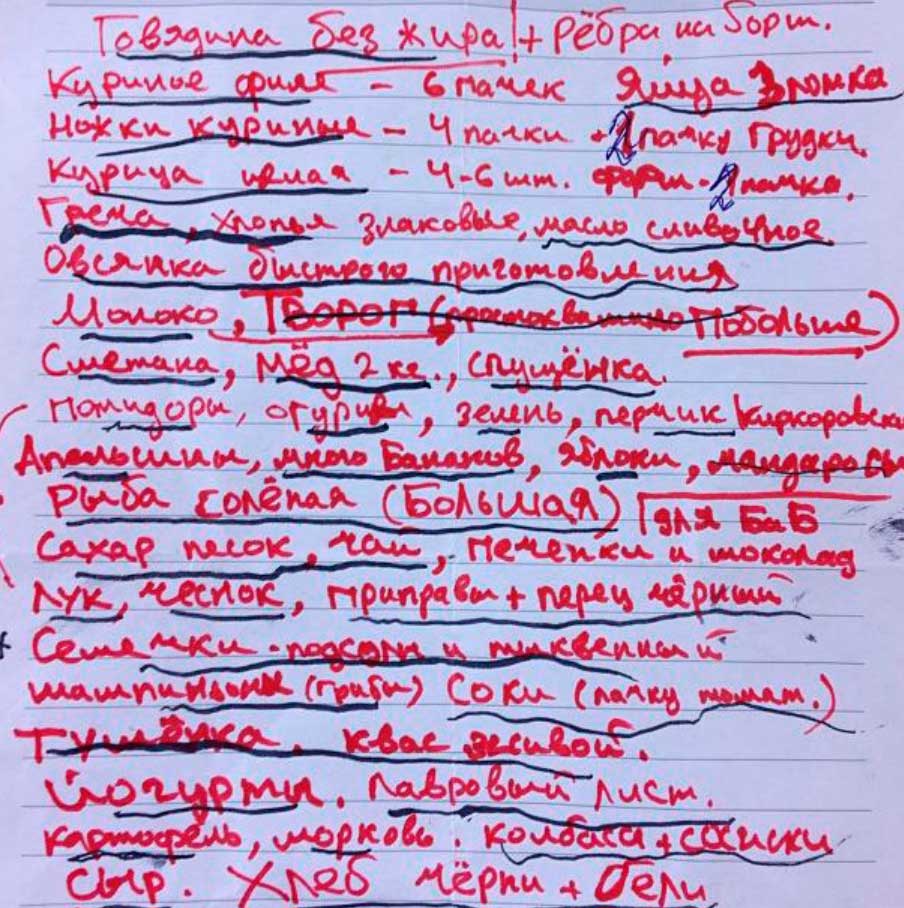 Говядина без жира + Рёбра на борщ.
Куриное филе - 6 пачек Яйца 3 ломка
Ножки куриные - 4 пачки + 2 пачку грудки.
Курица целая - 4-6 шт. фарш - 2 пачка.
Греча, хлопья злаковые, масло сливочное.
Овсянка быстрого приготовления
Молоко, Творог (простоквашино побольше)
Сметана, мёд 2 кг., сгущёнка.
помидоры, огурцы, зелень, перчик Киркоровский
Апельсины, много Бананов, яблоки, мандарины
Рыба солёная (Большая) для БиБ
Сахар песок, чай, печеньки и шоколад
Лук, чеснок, приправы + перец чёрный
Семечки - подсолн и тыквенный
шампиньоны (грибы) Соки (пачку томат.)
Тушёнка, квас живой.
Йогурты. Лавровый лист.
картофель, морковь. колбаса + сосиски
Сыр. Хлеб чёрны + бели